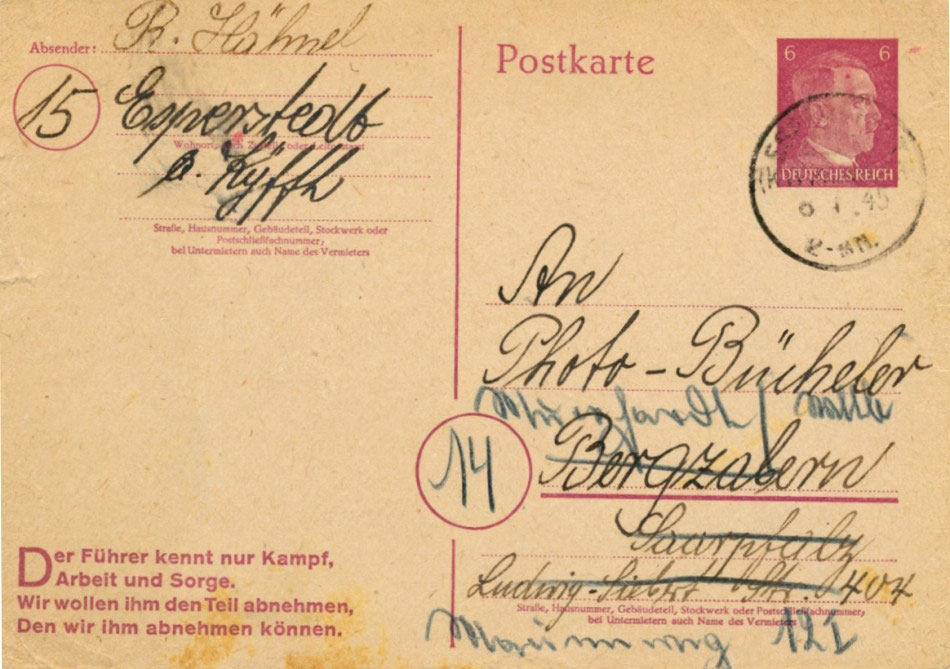 Absender: R. Hähnel
15 Esperstedt
Wohnort, auch Zustell- oder Leitpostamt
a. Kyffh
Straße, Hausnummer, Gebäudeteil, Stockwerk oder
Postschließfachnummer;
bei Untermietern auch Name des Vermieters
Der Führer kennt nur Kampf,
Arbeit und Sorge.
Wir wollen ihm den Teil abnehmen,
Den wir ihm abnehmen können.
Postkarte
6 6
DEUTSCHES REICH
45
An
Photo-Bücheler
Murrhardt /
14 Bergzabern
Saarpfalz
Ludwig-Siebert Str. 404
Straße, Hausnummer, Gebäudeteil, Stockwerk oder Postschließfachnummer;
bei Untermietern auch Name des Vermieters